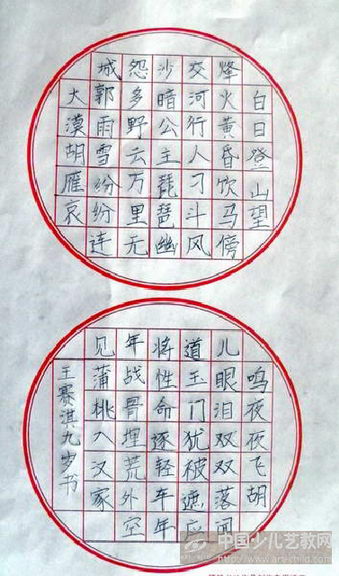 白日登山望
烽火黄昏饮马傍
交河行人刁斗风
沙暗公主琵琶幽
怨多野云万里无
城郭雨雪纷纷连
大漠胡雁哀
鸣夜夜飞胡
儿眼泪双双落闻
道玉门犹被遮应
将性命逐轻车年
年战骨埋荒外空
见蒲桃入汉家
王赛淇九岁书
中国少儿艺教网